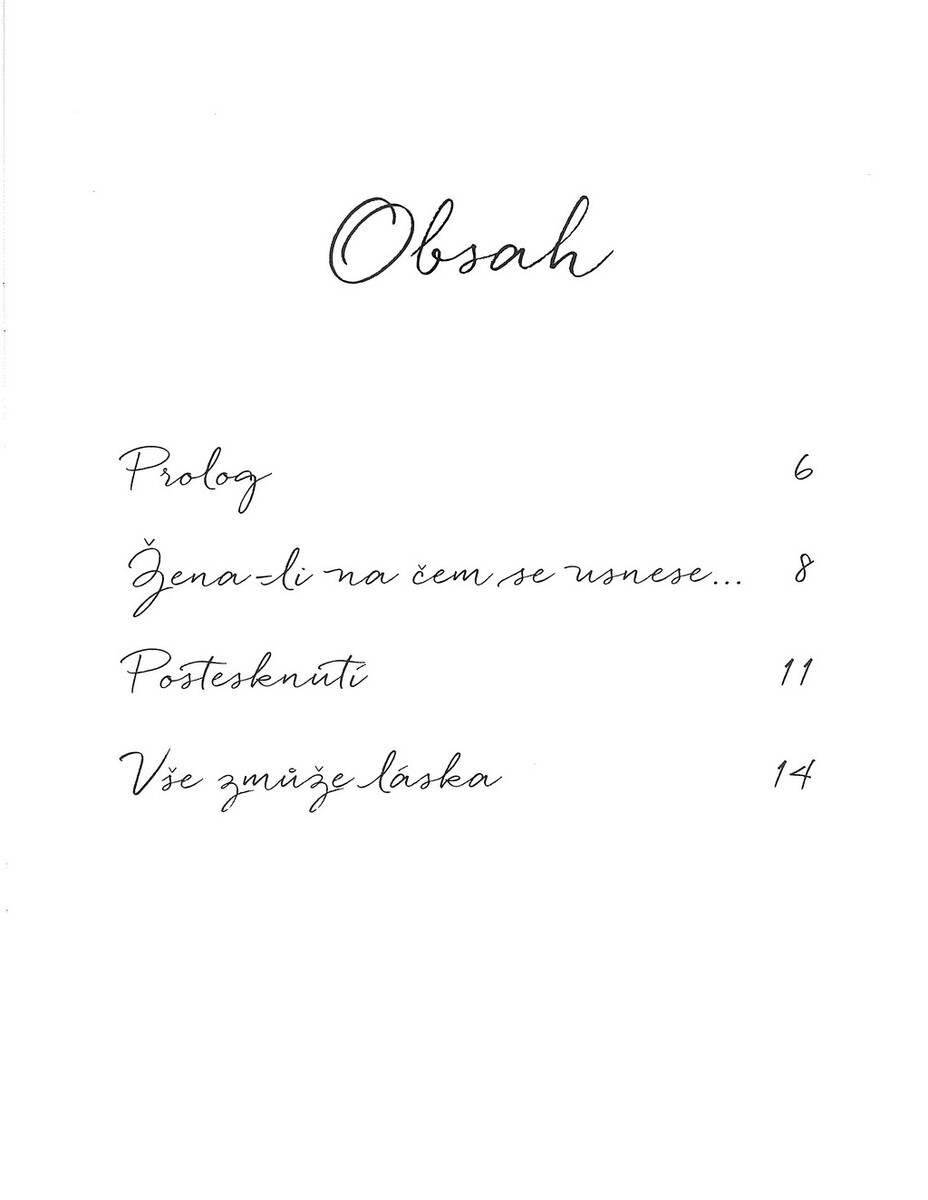 Obsah
Prolog 6
Žena-li na čem se usnese... 8
Postesknutí 11
Vše zmůže láska 14